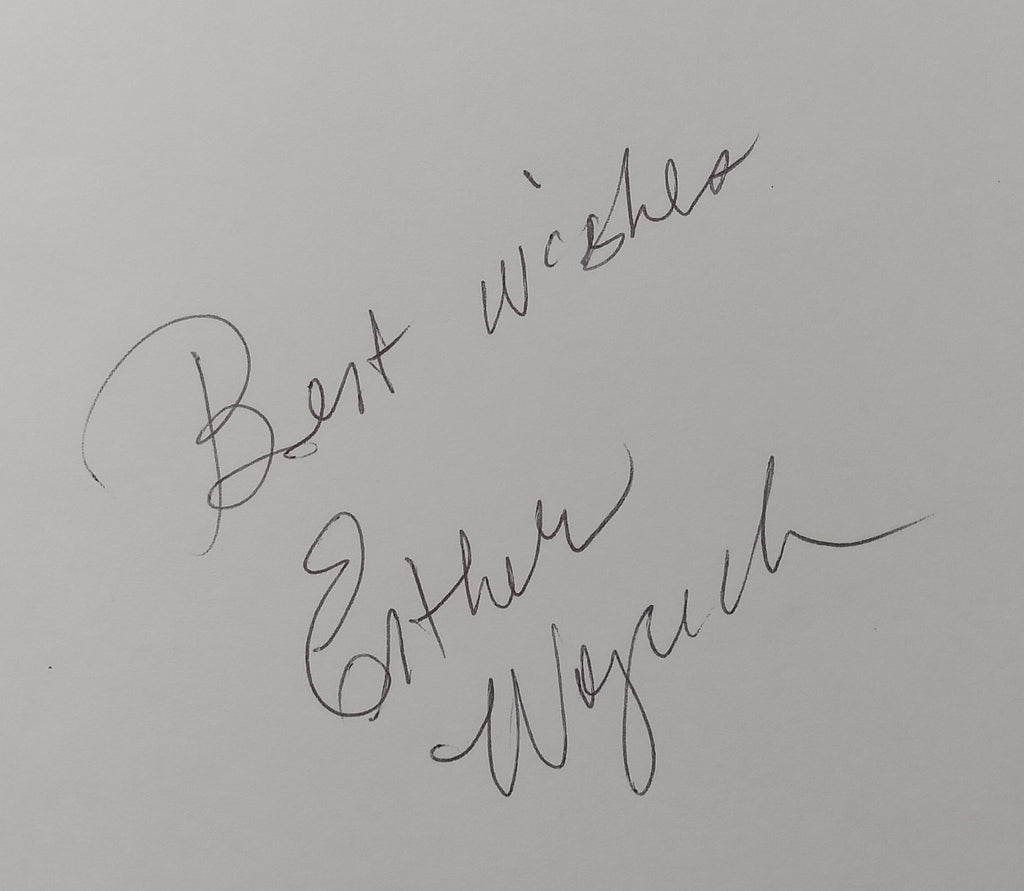 Best Wishes
Esther
Wojcicki